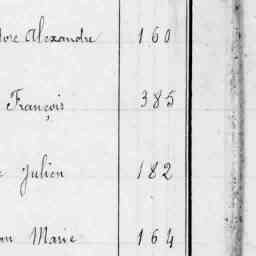 Alexandre 160
François 385
Julien 182
Marie 164